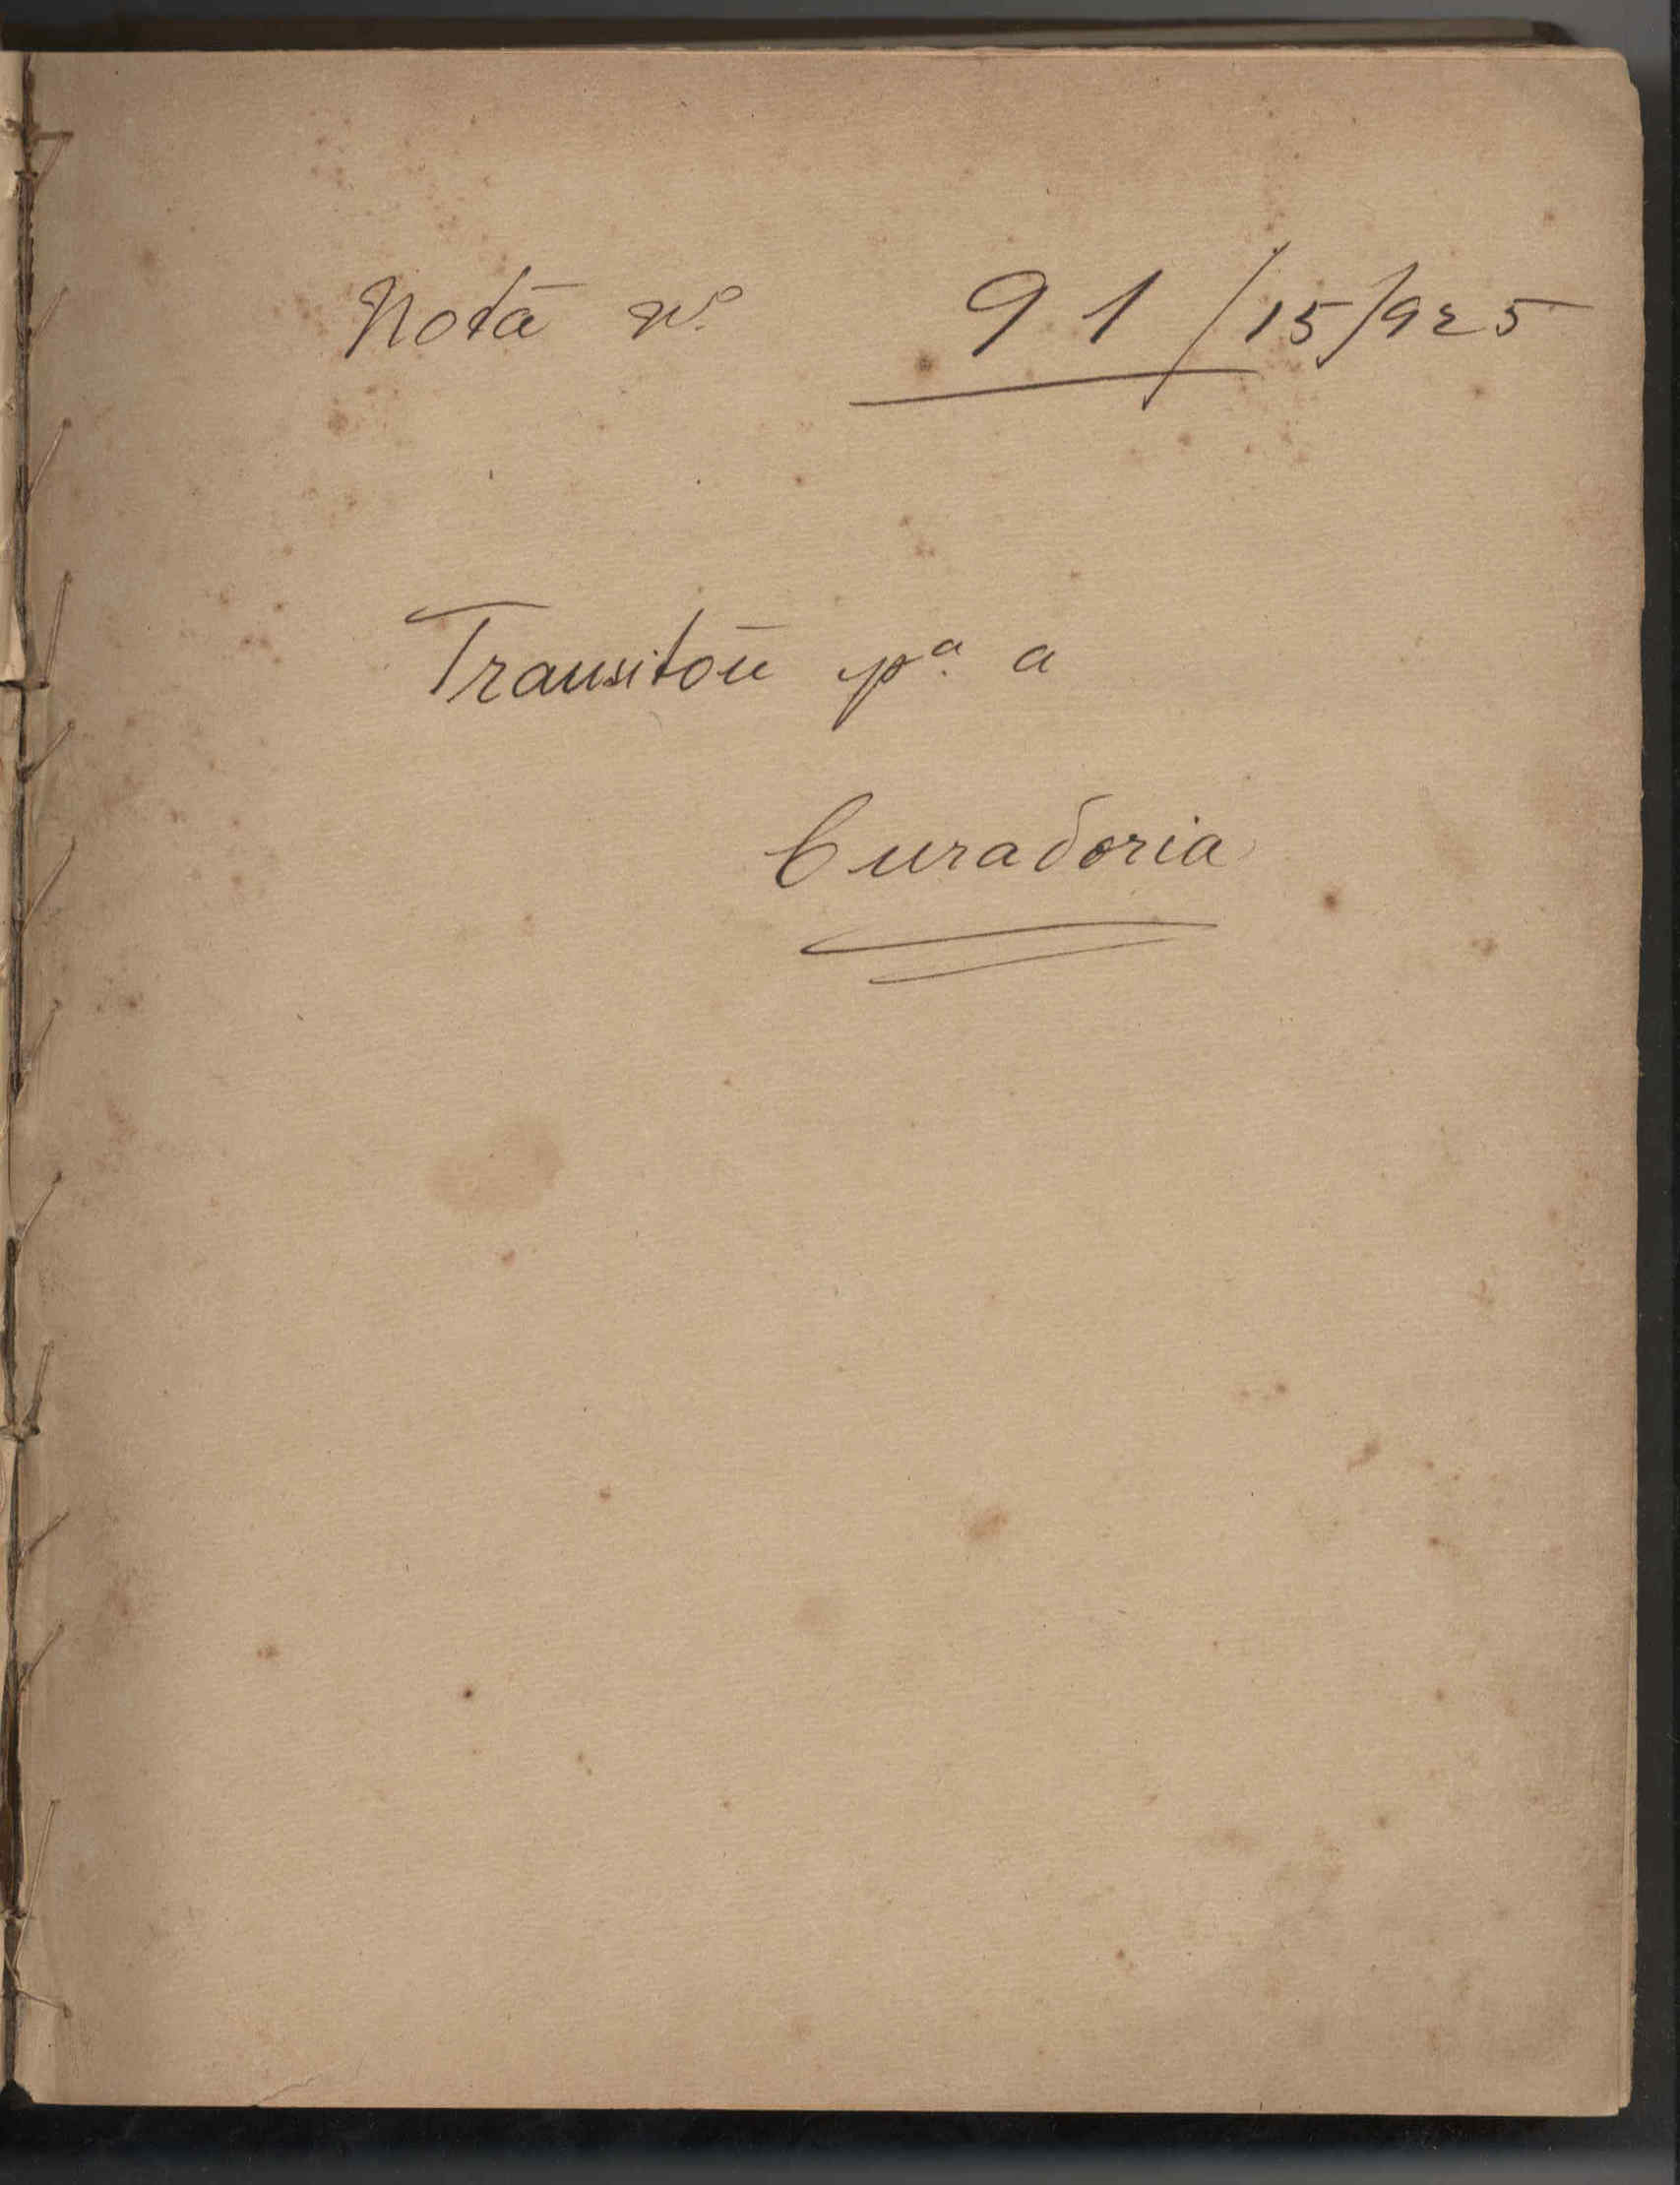 Nota nº 91/15/925
Transitou pª a
Curadoria